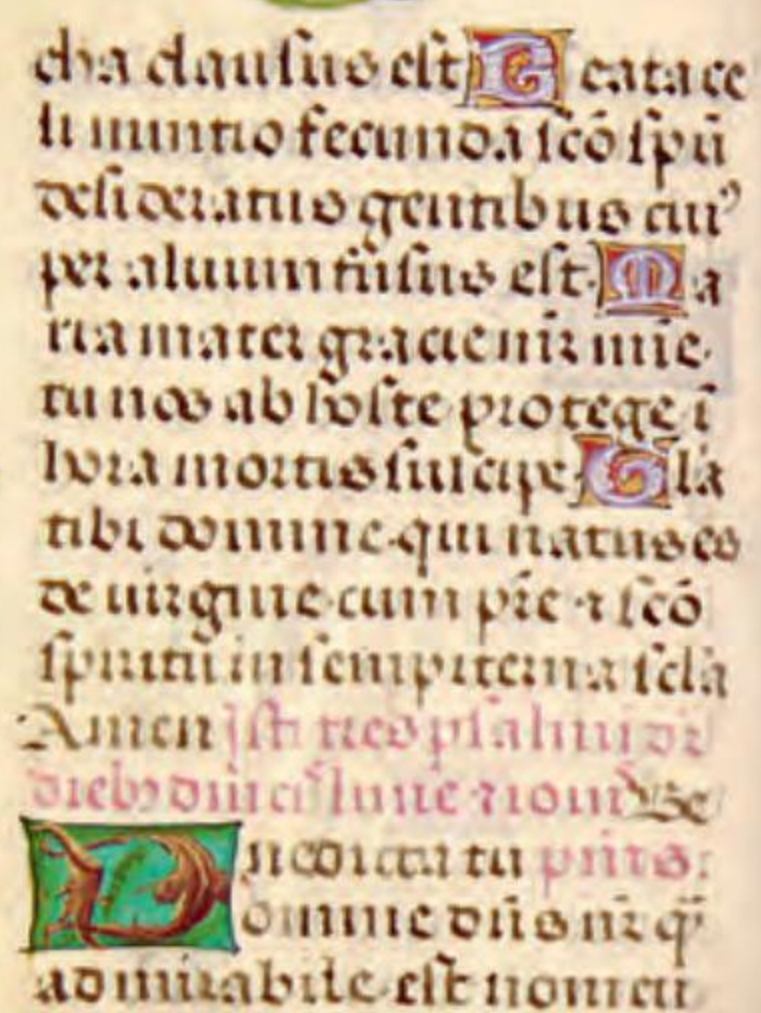 cha clausus est Beata ce
li nuntio fecunda sc̄o sp̄u
desideratus gentibus cui⁹
per aluum fūsus est. Ma
ria mater gracie mr̄ mīe.
tu nos ab hoste protege ī
hora mortis suscipe. Gl̄a
tibi domine. qui natus es
de uirgine. cum pr̄e ⁊ sc̄o
spiritū in sempiterna scl̄a
Amen isti tres psalmi dr̄
dieb⁹ dn̄icis lune ⁊ iouis Be
nedicta tu psm̄s.
Domine dn̄s nr̄ qm̄
admirabile est nomen